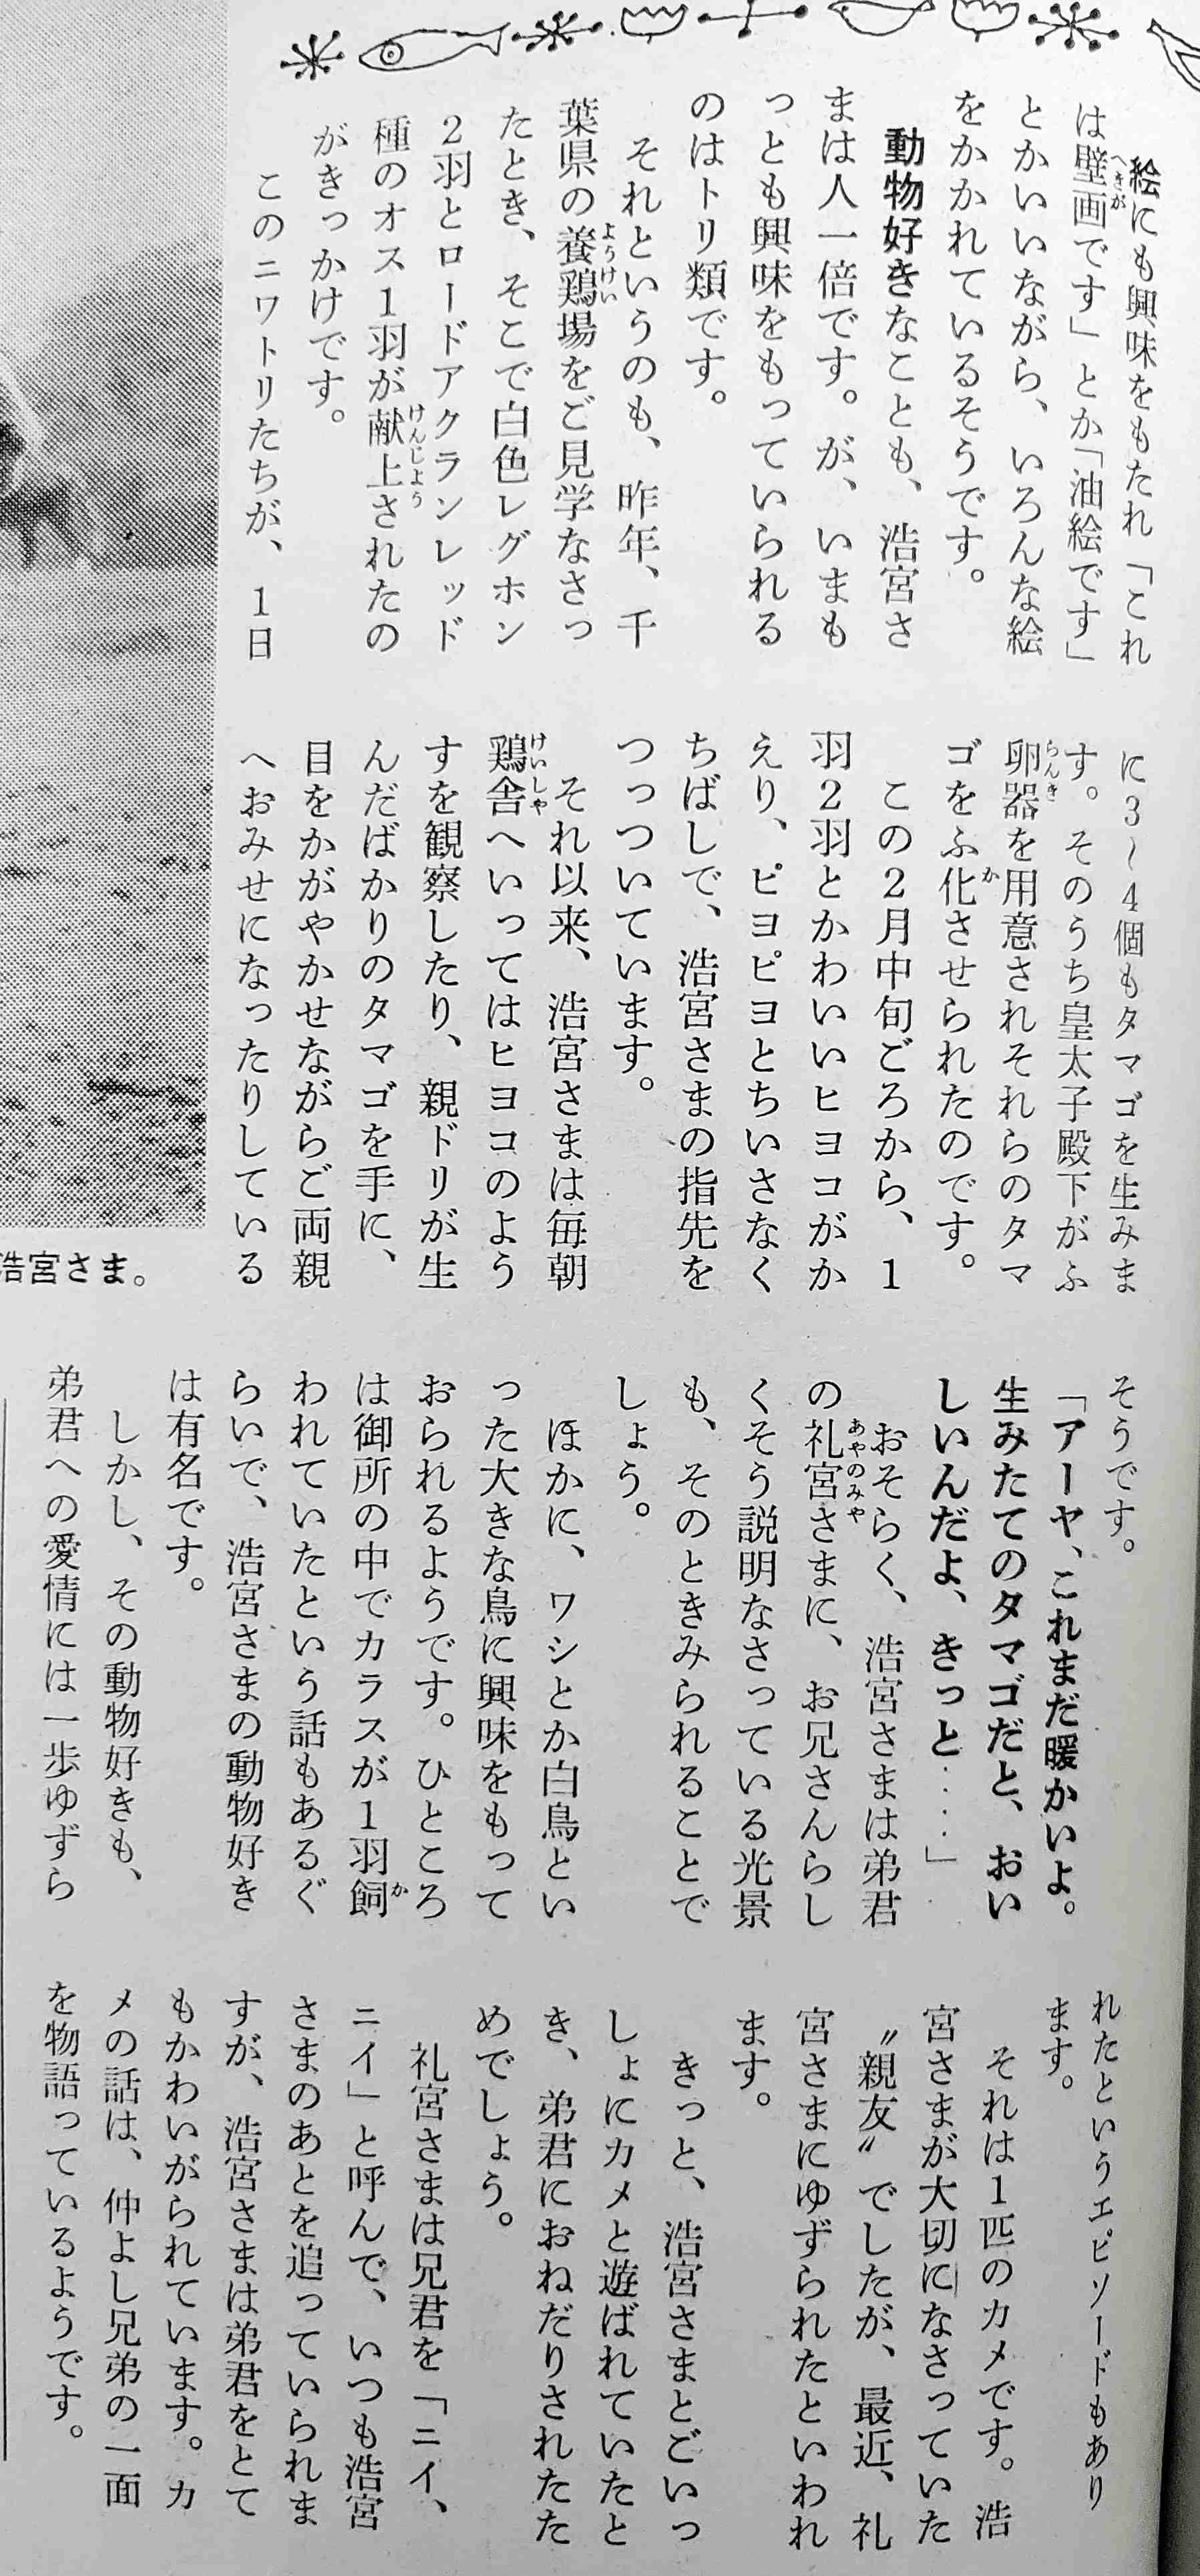 絵にも興味をもたれ「これ
は壁画です」とか「油絵です」
とかいいながら、いろんな絵
をかかれているそうです。
動物好きなことも、浩宮さ
まは人一倍です。が、いまも
っとも興味をもっていられる
のはトリ類です。
それというのも、昨年、千
葉県の養鶏場をご見学なさっ
たとき、そこで白色レグホン
2羽とロードアクランレッド
種のオス1羽が献上されたの
がきっかけです。
このニワトリたちが、1日
に3〜4個もタマゴを生みま
す。そのうち皇太子殿下がふ
卵器を用意されそれらのタマ
ゴをふ化させられたのです。
この2月中旬ごろから、1
羽2羽とかわいいヒヨコがか
えり、ピヨピヨとちいさなく
ちばしで、浩宮さまの指先を
つっついています。
それ以来、浩宮さまは毎朝
鶏舎へいってはヒヨコのよう
すを観察したり、親ドリが生
んだばかりのタマゴを手に、
目をかがやかせながらご両親
へおみせになったりしている
浩宮さま。
そうです。
「アーヤ、これまだ暖かいよ。
生みたてのタマゴだと、おい
しいんだよ、きっと‥‥」
おそらく、浩宮さまは弟君
の礼宮さまに、お兄さんらし
くそう説明なさっている光景
も、そのときみられることで
しょう。
ほかに、ワシとか白鳥とい
った大きな鳥に興味をもって
おられるようです。ひところ
は御所の中でカラスが1羽飼
われていたという話もあるぐ
らいで、浩宮さまの動物好き
は有名です。
しかし、その動物好きも、
弟君への愛情には一歩ゆずら
れたというエピソードもあり
ます。
それは1匹のカメです。浩
宮さまが大切になさっていた
〝親友〟でしたが、最近、礼
宮さまにゆずられたといわれ
ます。
きっと、浩宮さまとごいっ
しょにカメと遊ばれていたと
き、弟君におねだりされたた
めでしょう。
礼宮さまは兄君を「ニイ、
ニイ」と呼んで、いつも浩宮
さまのあとを追っていられま
すが、浩宮さまは弟君をとて
もかわいがられています。カ
メの話は、仲よし兄弟の一面
を物語っているようです。